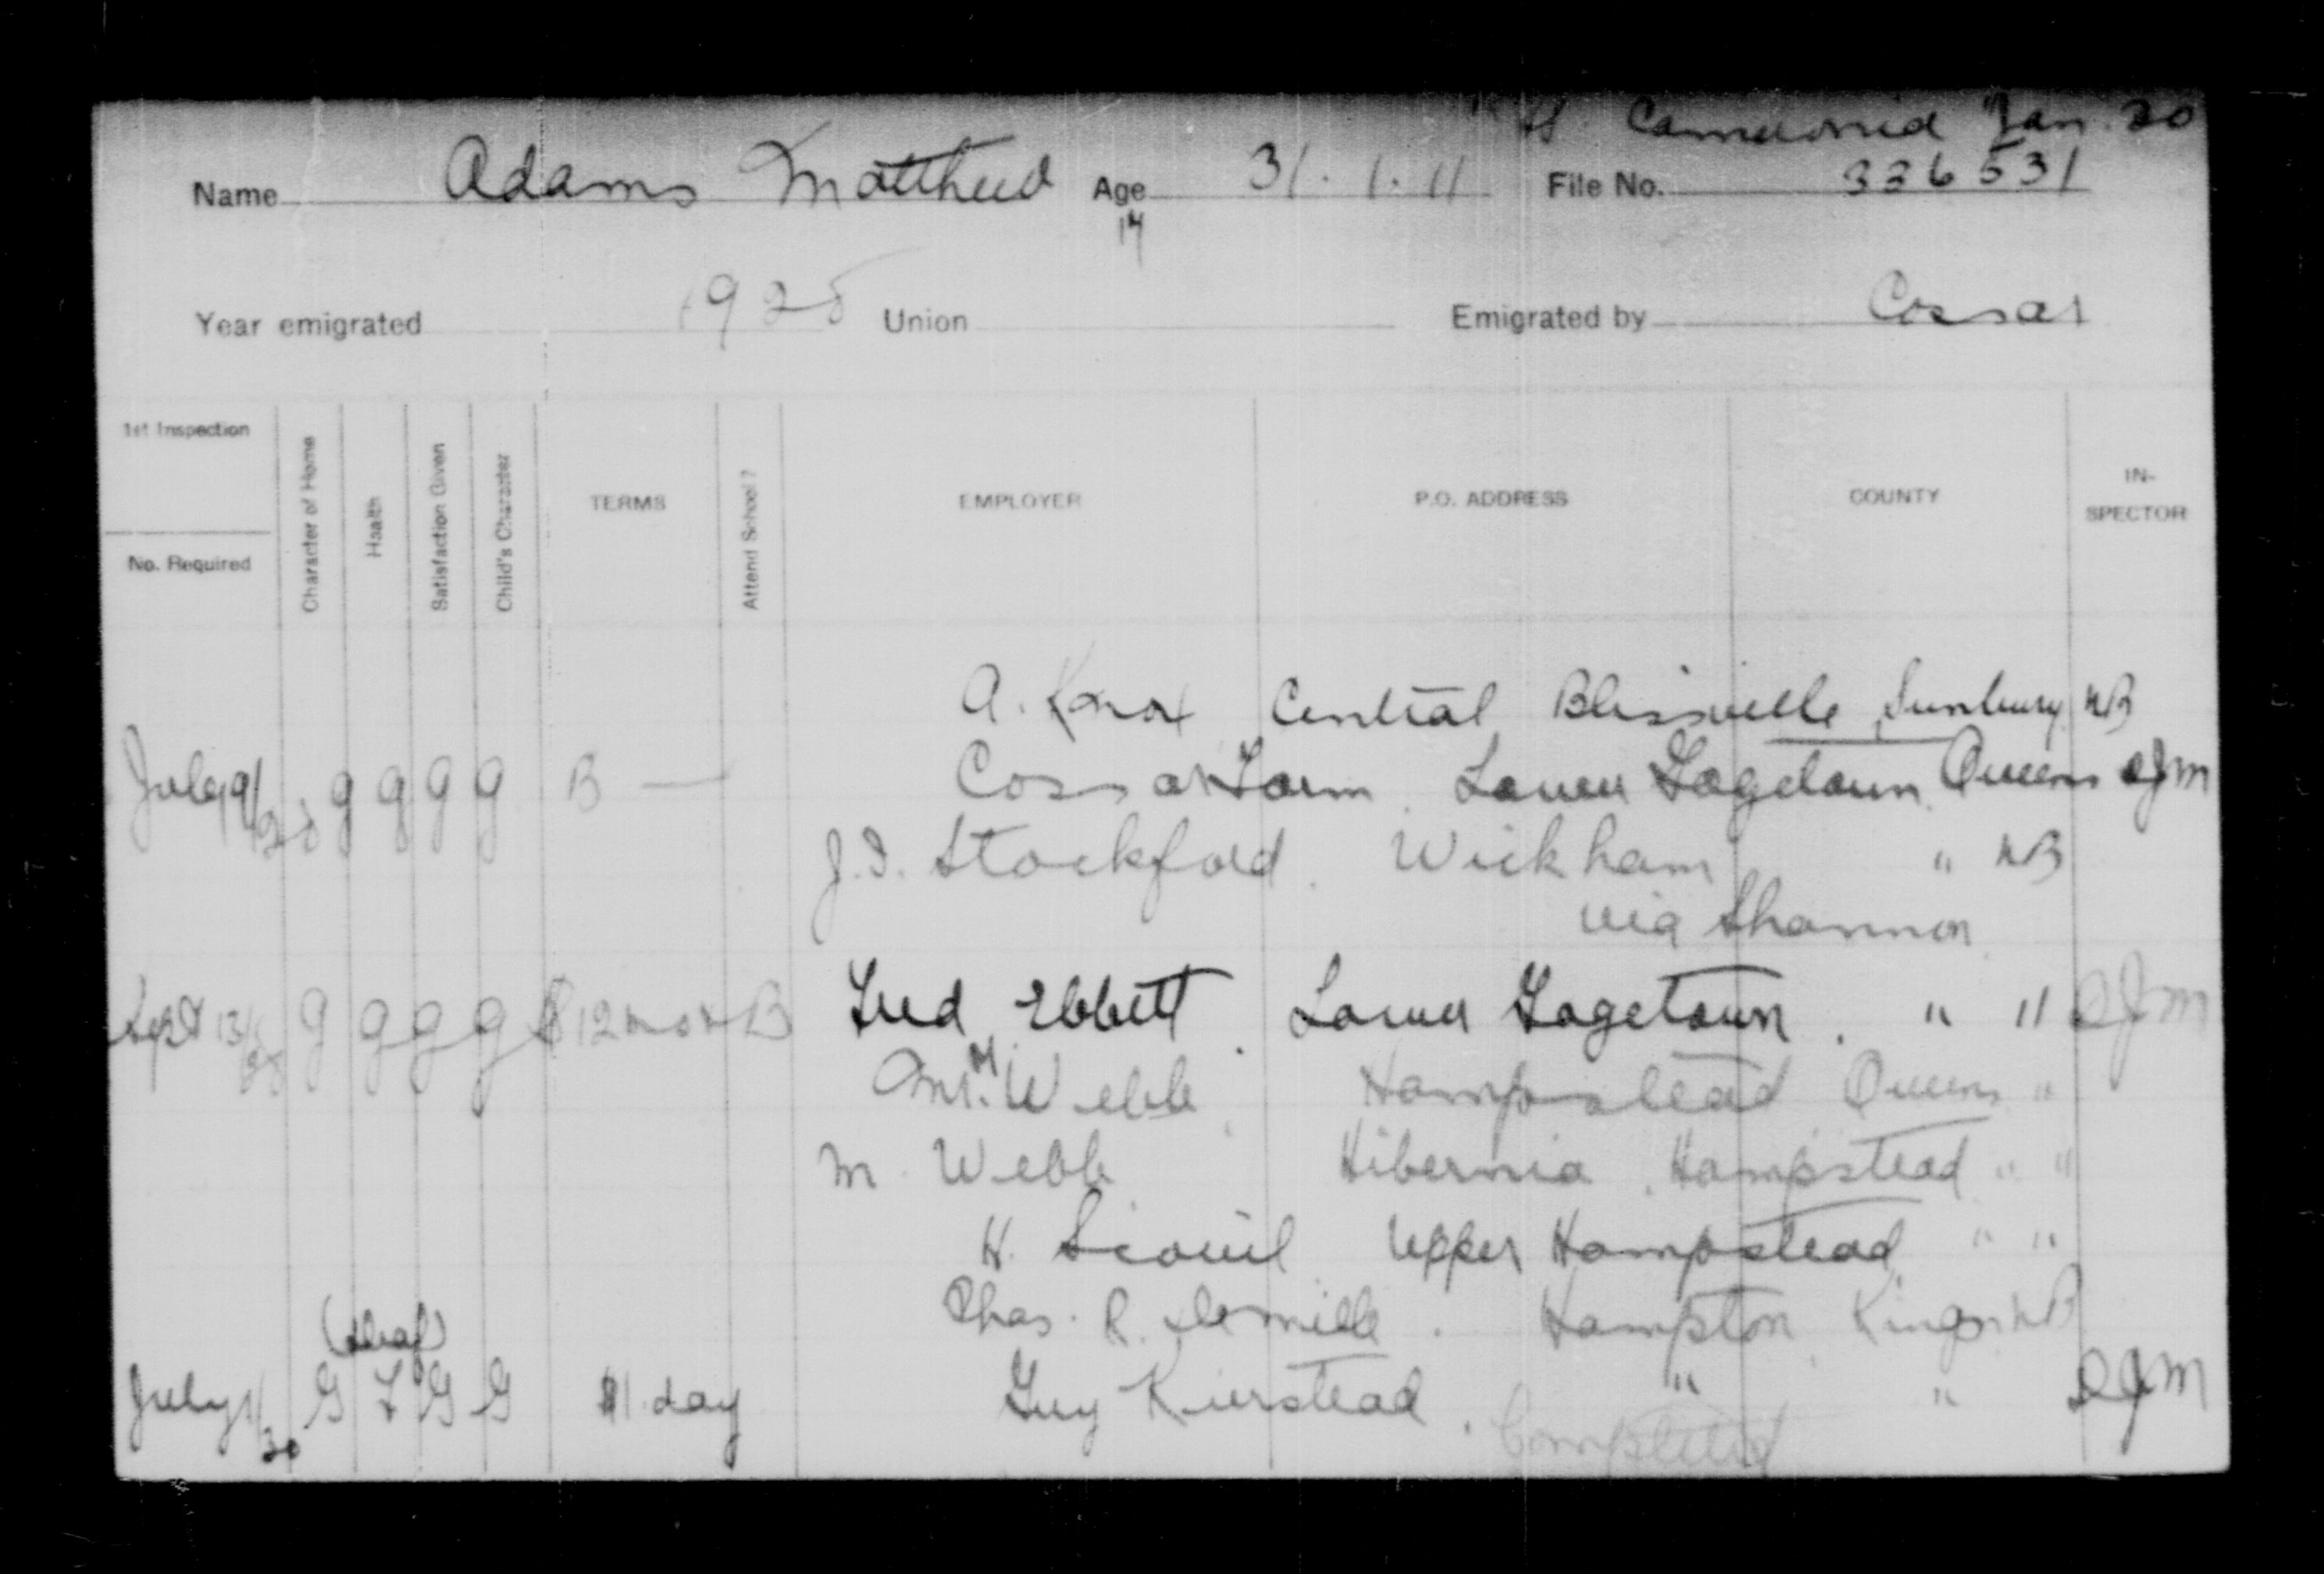 Cameronia Jan. 20
Name Adams Matthew Age 31.1.11 File No. 336531
17
Year emigrated 1928 Union Emigrated by Cossar
1st Inspection
No. Required
Character of Home
Health
Satisfaction Given
Child's Character
TERMS
Attend School?
EMPLOYER
P.O. ADDRESS
COUNTY
IN-
SPECTOR
A. Knox Central Blissville Sunbury NB
July 9/28 g g g g B — Cossar Farm. Lower Gagetown Queens
J.I. Stockford. Wickham " NB
via Shannon
Sept 13/28 g g g g $12 mos B Fred Ebbett. Lower Gagetown. " "
Webb Hampstead Queens "
M. Webb Hibernia. Hampstead " "
H. Upper Hampstead " "
Chas. R. Demille. Hampton Kings NB
(deaf)
July 1/30 G F G G $1. day Guy Kierstead. " "
Completed